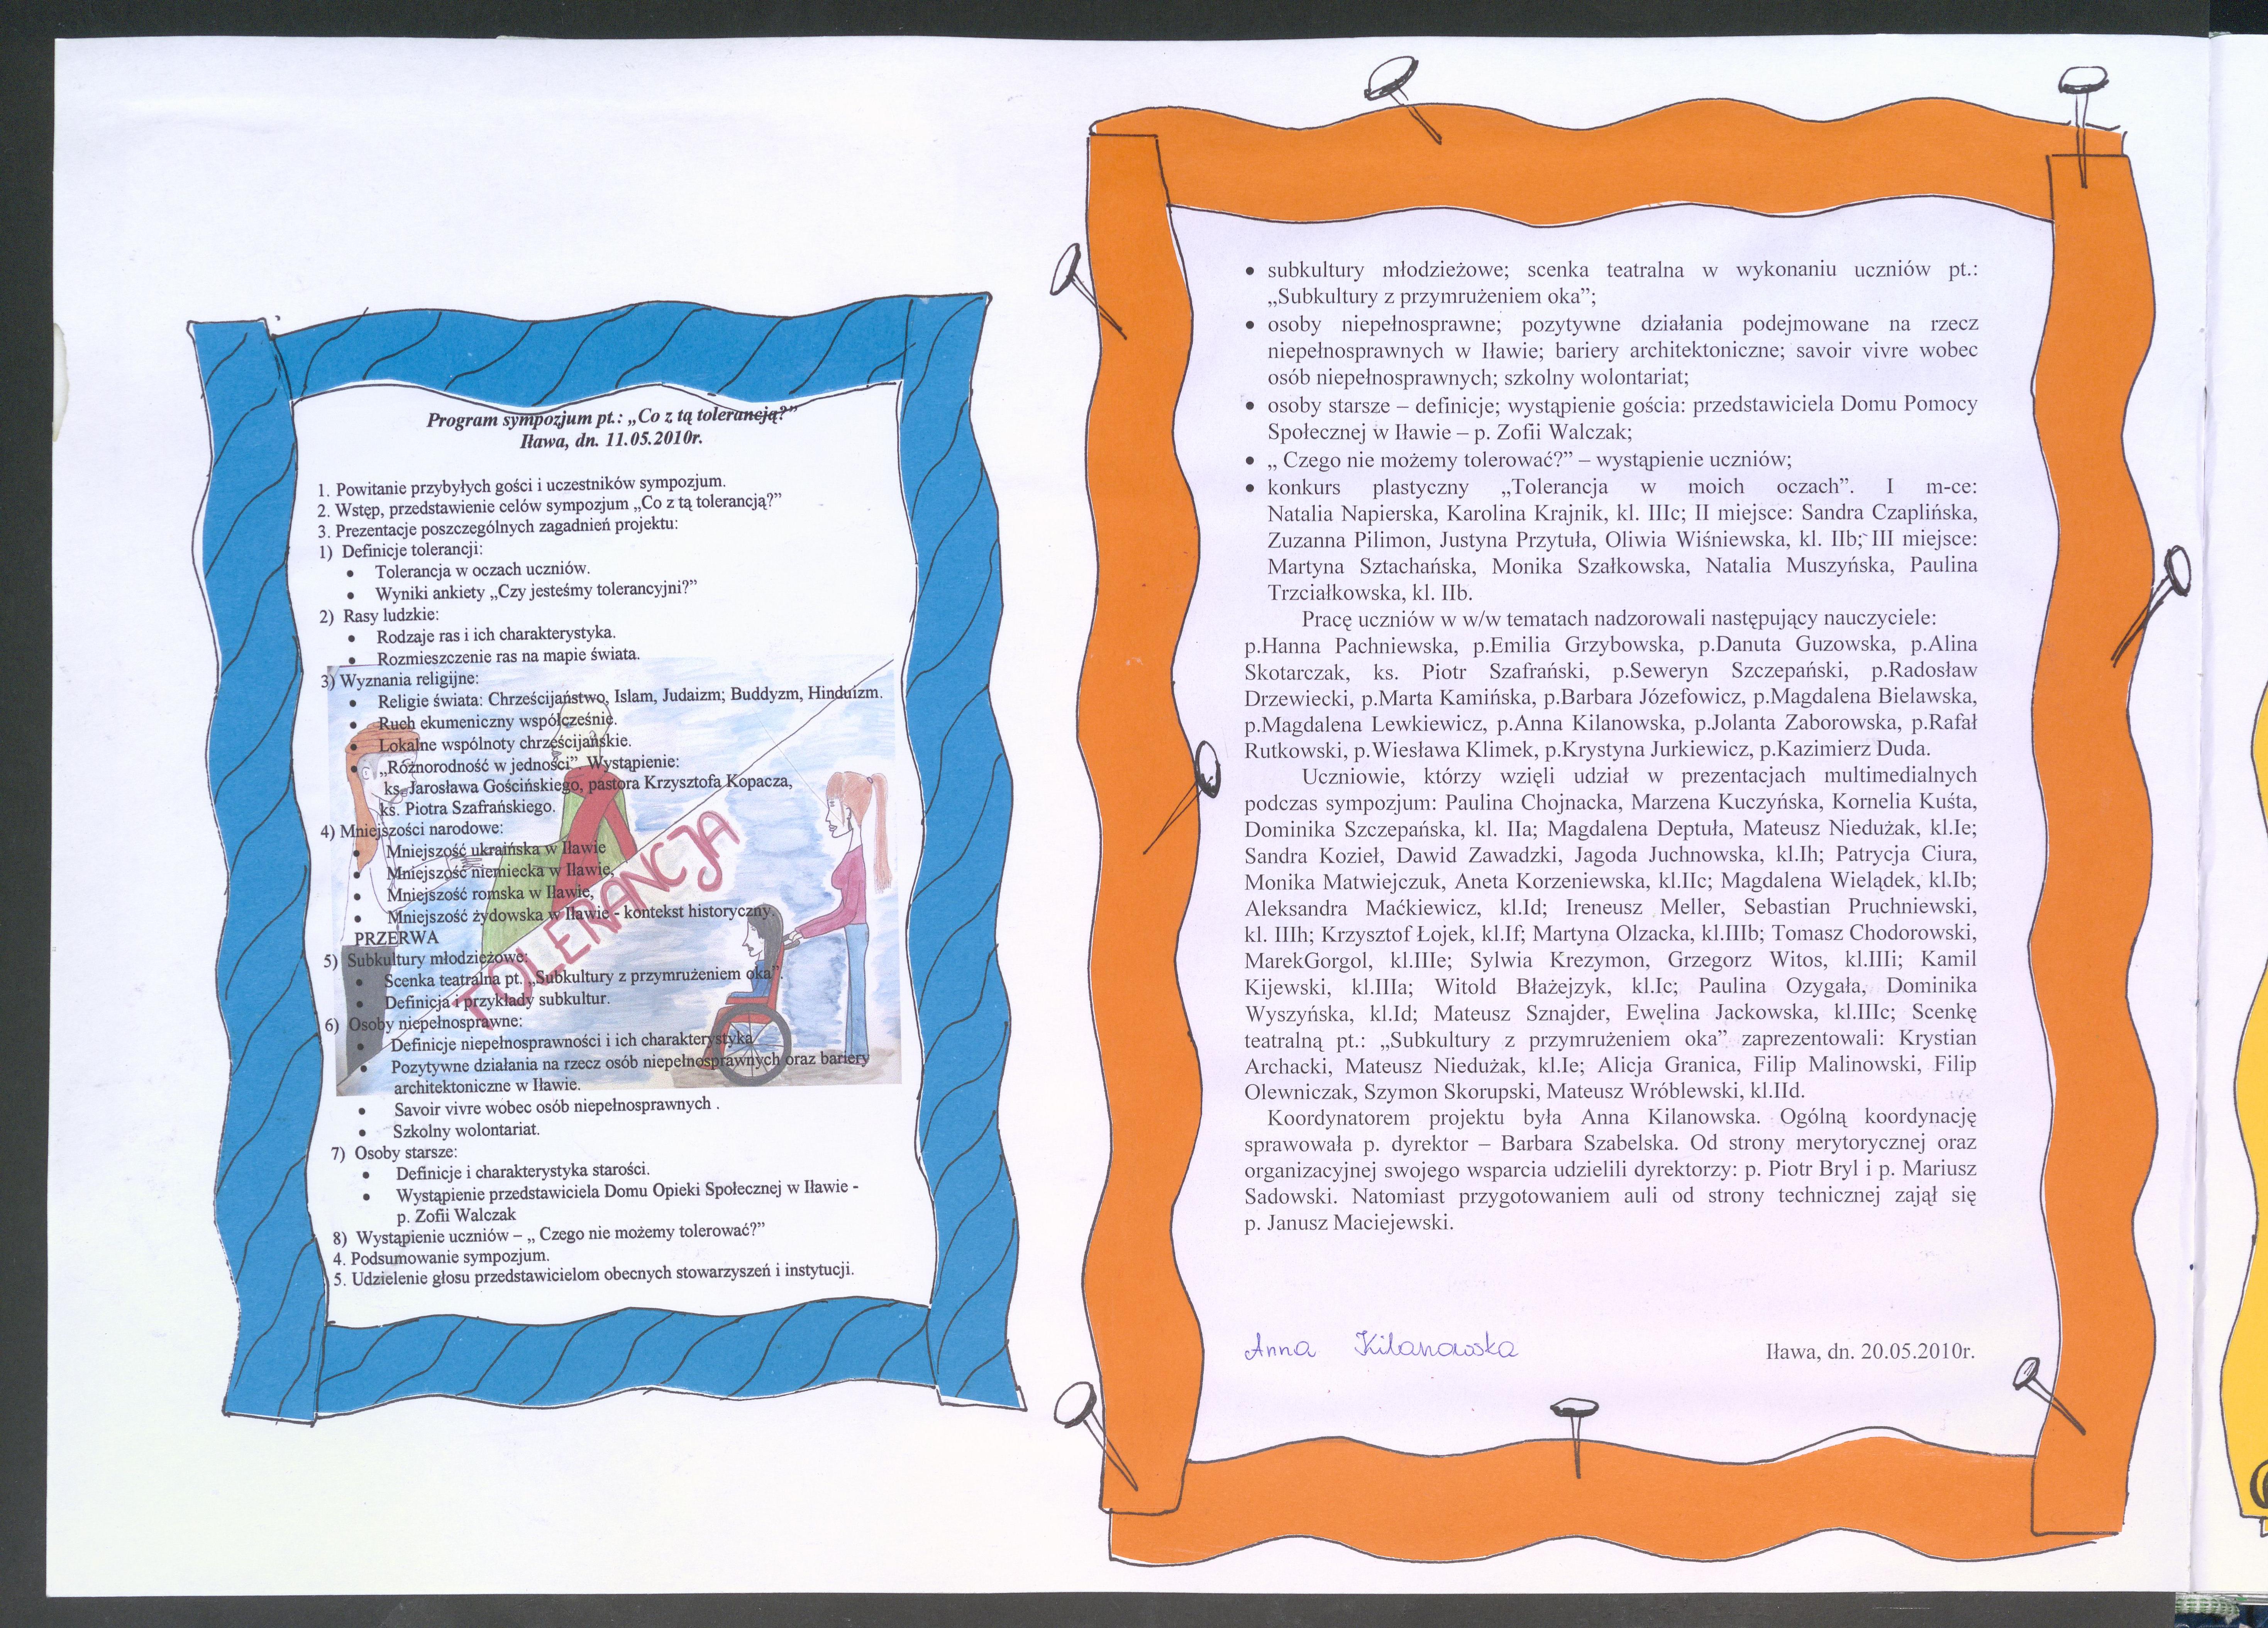 Program sympozjum pt.: „Co z tą tolerancją?”
Iława, dn. 11.05.2010r.
1. Powitanie przybyłych gości i uczestników sympozjum.
2. Wstęp, przedstawienie celów sympozjum „Co z tą tolerancją?”
3. Prezentacje poszczególnych zagadnień projektu:
1) Definicje tolerancji:
• Tolerancja w oczach uczniów.
• Wyniki ankiety „Czy jesteśmy tolerancyjni?”
2) Rasy ludzkie:
• Rodzaje ras i ich charakterystyka.
• Rozmieszczenie ras na mapie świata.
3) Wyznania religijne:
• Religie świata: Chrześcijaństwo, Islam, Judaizm; Buddyzm, Hinduizm.
• Ruch ekumeniczny współcześnie.
• Lokalne wspólnoty chrześcijańskie.
• „Różnorodność w jedności” Wystąpienie:
ks. Jarosława Gościńskiego, pastora Krzysztofa Kopacza,
ks. Piotra Szafrańskiego.
4) Mniejszości narodowe:
• Mniejszość ukraińska w Iławie
• Mniejszość niemiecka w Iławie,
• Mniejszość romska w Iławie,
• Mniejszość żydowska w Iławie - kontekst historyczny.
PRZERWA
5) Subkultury młodzieżowe:
• Scenka teatralna pt. „Subkultury z przymrużeniem oka”.
• Definicja i przykłady subkultur.
6) Osoby niepełnosprawne:
• Definicje niepełnosprawności i ich charakterystyka
• Pozytywne działania na rzecz osób niepełnosprawnych oraz bariery
architektoniczne w Iławie.
• Savoir vivre wobec osób niepełnosprawnych .
• Szkolny wolontariat.
7) Osoby starsze:
• Definicje i charakterystyka starości.
• Wystąpienie przedstawiciela Domu Opieki Społecznej w Iławie -
p. Zofii Walczak
8) Wystąpienie uczniów – „ Czego nie możemy tolerować?”
4. Podsumowanie sympozjum.
5. Udzielenie głosu przedstawicielom obecnych stowarzyszeń i instytucji.
TOLERANCJA
• subkultury młodzieżowe; scenka teatralna w wykonaniu uczniów pt.:
„Subkultury z przymrużeniem oka”;
• osoby niepełnosprawne; pozytywne działania podejmowane na rzecz
niepełnosprawnych w Iławie; bariery architektoniczne; savoir vivre wobec
osób niepełnosprawnych; szkolny wolontariat;
• osoby starsze – definicje; wystąpienie gościa: przedstawiciela Domu Pomocy
Społecznej w Iławie – p. Zofii Walczak;
• „ Czego nie możemy tolerować?” – wystąpienie uczniów;
• konkurs plastyczny „Tolerancja w moich oczach”. I m-ce:
Natalia Napierska, Karolina Krajnik, kl. IIIc; II miejsce: Sandra Czaplińska,
Zuzanna Pilimon, Justyna Przytuła, Oliwia Wiśniewska, kl. IIb; III miejsce:
Martyna Sztachańska, Monika Szałkowska, Natalia Muszyńska, Paulina
Trzciałkowska, kl. IIb.
Pracę uczniów w w/w tematach nadzorowali następujący nauczyciele:
p.Hanna Pachniewska, p.Emilia Grzybowska, p.Danuta Guzowska, p.Alina
Skotarczak, ks. Piotr Szafrański, p.Seweryn Szczepański, p.Radosław
Drzewiecki, p.Marta Kamińska, p.Barbara Józefowicz, p.Magdalena Bielawska,
p.Magdalena Lewkiewicz, p.Anna Kilanowska, p.Jolanta Zaborowska, p.Rafał
Rutkowski, p.Wiesława Klimek, p.Krystyna Jurkiewicz, p.Kazimierz Duda.
Uczniowie, którzy wzięli udział w prezentacjach multimedialnych
podczas sympozjum: Paulina Chojnacka, Marzena Kuczyńska, Kornelia Kuśta,
Dominika Szczepańska, kl. IIa; Magdalena Deptuła, Mateusz Niedużak, kl.Ie;
Sandra Kozieł, Dawid Zawadzki, Jagoda Juchnowska, kl.Ih; Patrycja Ciura,
Monika Matwiejczuk, Aneta Korzeniewska, kl.IIc; Magdalena Wielądek, kl.Ib;
Aleksandra Maćkiewicz, kl.Id; Ireneusz Meller, Sebastian Pruchniewski,
kl. IIIh; Krzysztof Łojek, kl.If; Martyna Olzacka, kl.IIIb; Tomasz Chodorowski,
MarekGorgol, kl.IIIe; Sylwia Krezymon, Grzegorz Witos, kl.IIIi; Kamil
Kijewski, kl.IIIa; Witold Błażejzyk, kl.Ic; Paulina Ozygała, Dominika
Wyszyńska, kl.Id; Mateusz Sznajder, Ewelina Jackowska, kl.IIIc; Scenkę
teatralną pt.: „Subkultury z przymrużeniem oka” zaprezentowali: Krystian
Archacki, Mateusz Niedużak, kl.Ie; Alicja Granica, Filip Malinowski, Filip
Olewniczak, Szymon Skorupski, Mateusz Wróblewski, kl.IId.
Koordynatorem projektu była Anna Kilanowska. Ogólną koordynację
sprawowała p. dyrektor – Barbara Szabelska. Od strony merytorycznej oraz
organizacyjnej swojego wsparcia udzielili dyrektorzy: p. Piotr Bryl i p. Mariusz
Sadowski. Natomiast przygotowaniem auli od strony technicznej zajął się
p. Janusz Maciejewski.
Anna Kilanowska
Iława, dn. 20.05.2010r.